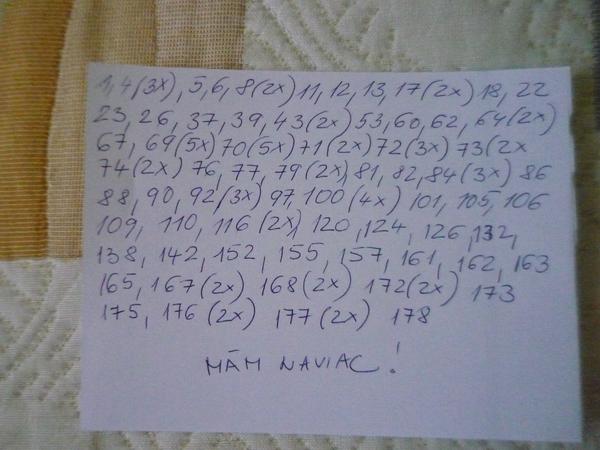 1, 4(3x), 5, 6, 8(2x) 11, 12, 13, 17(2x) 18, 22
23, 26, 37, 39, 43(2x) 53, 60, 62, 64(2x)
67, 69(5x) 70(5x) 71(2x) 72(3x) 73(2x
74(2x) 76, 77, 79(2x), 81, 82, 84(3x) 86
88, 90, 92(3x) 97, 100(4x) 101, 105, 106
109, 110, 116(2x), 120, 124, 126, 132,
138, 142, 152, 155, 157, 161, 162, 163
165, 167(2x) 168(2x) 172(2x) 173
175, 176(2x) 177(2x) 178
MÁM NAVIAC!